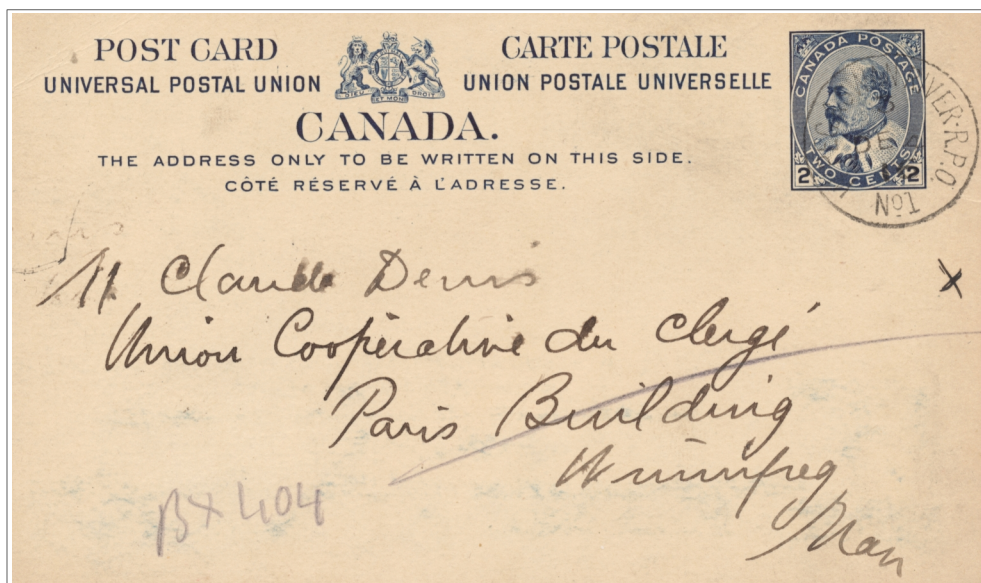 POST CARD
UNIVERSAL POSTAL UNION
DIEU ET MON DROIT
CARTE POSTALE
UNION POSTALE UNIVERSELLE
CANADA.
THE ADDRESS ONLY TO BE WRITTEN ON THIS SIDE.
CÔTÉ RÉSERVÉ À L'ADRESSE.
CANADA POSTAGE
2 TWO CENTS 2
VER·R.P.O.
DE
No1
M Claude Denis
Union Coopérative du Clergé
Paris Building
Winnipeg
Man
X
BX 404